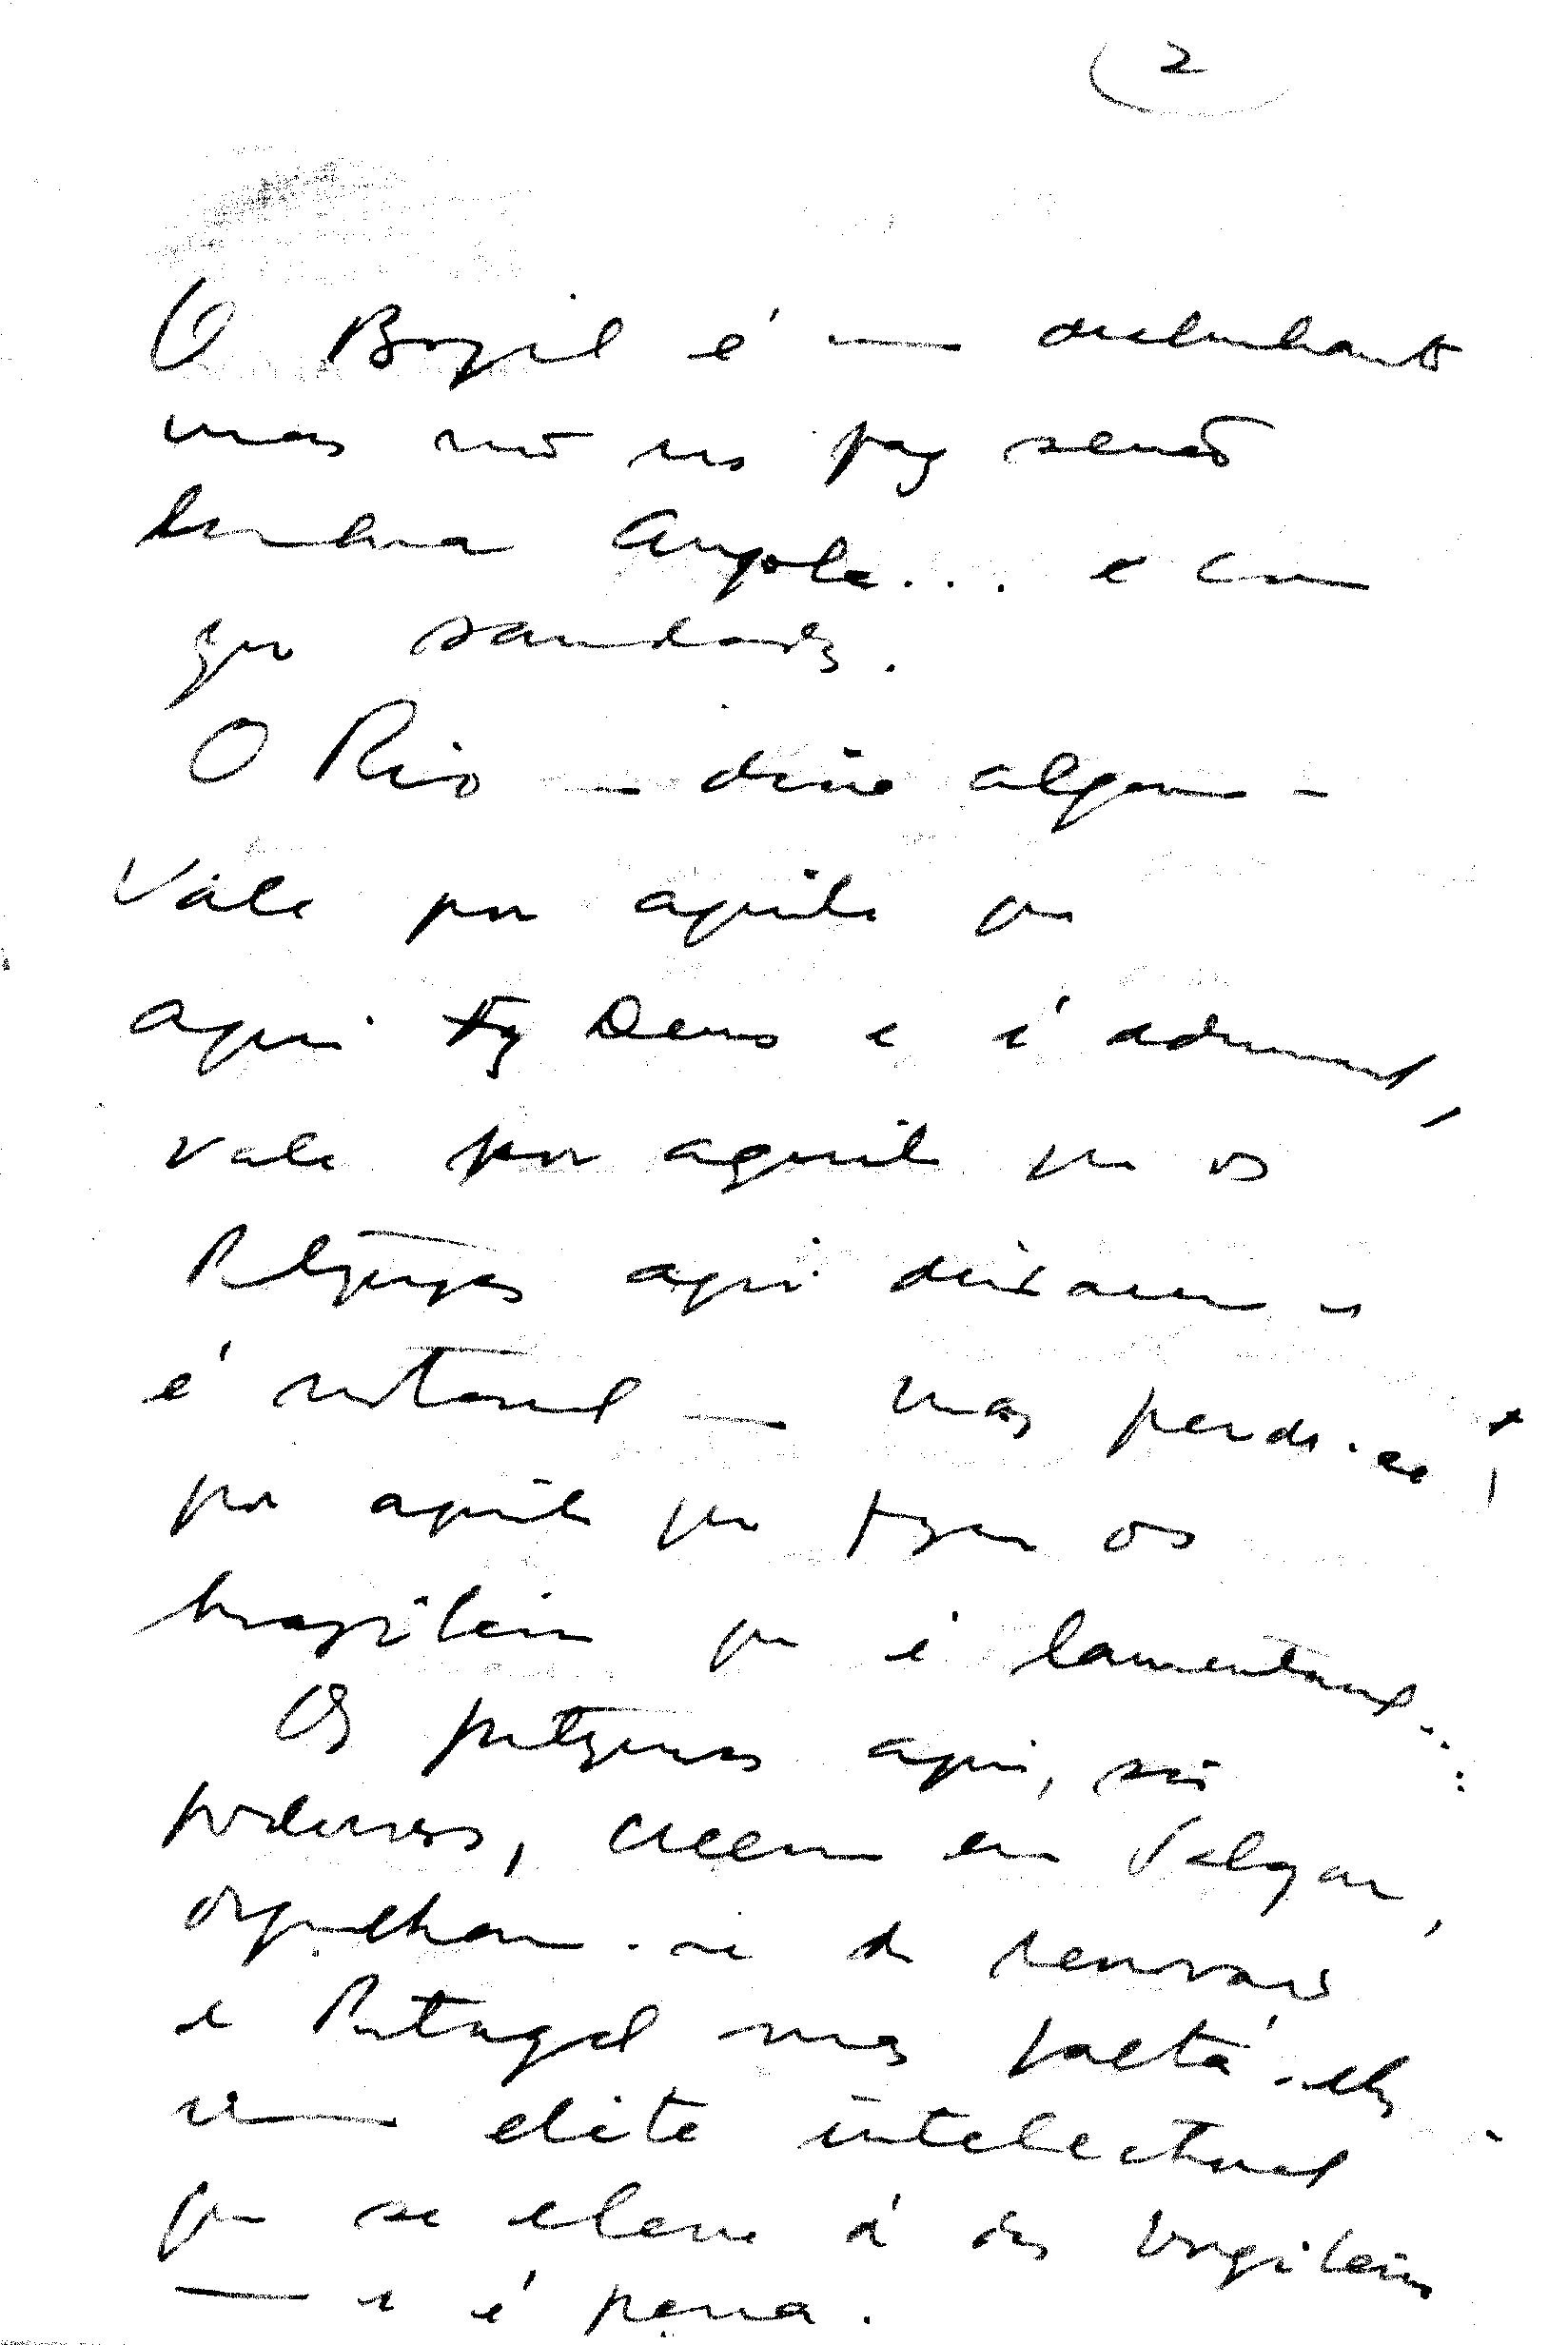 2
O Brazil é um deslumbrante
mas não nos faz senão
lembrar Angola... e com
que saudades.
O Rio — disse alguem -
Vale por aquilo que
aqui fez Deus e é admiravel,
vale por aquilo que os
Portugueses aqui deixaram e
é notavel — mas perde-se
por aquilo que fazem os
brazileiros que é lamentavel....
Os portugueses aqui, são
poderosos, creem em Salazar,
orgulham-se do renovar
e Portugal mas falta-lhes
uma elite intelectual
que se eleve á dos brazileiros
— e é pena.